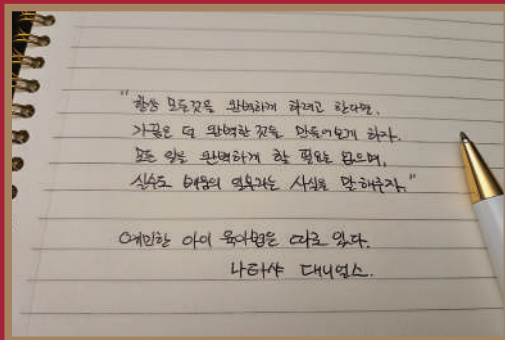 "항상 모든것을 완벽하게 하려고 한다면,
가끔은 덜 완벽한 것을 만들어보게 하자.
모든 일을 완벽하게 할 필요는 없으며,
실수도 배움의 일부라는 사실을 말해주자."
예민한 아이 육아법은 따로 있다.
나타샤 대니얼스.